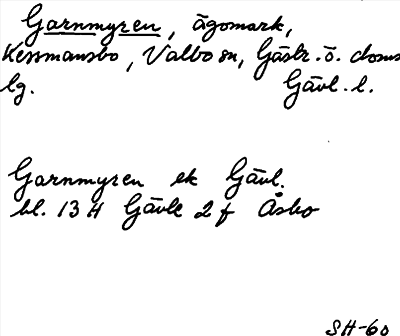 Garnmyren, ägomark,
Kessmansbo, Valbo sn, Gästr. ö. doms
lg. Gävl. l.
Garnmyren ek Gävl.
bl. 13 H Gävle 2 f Åsbo
SH-60